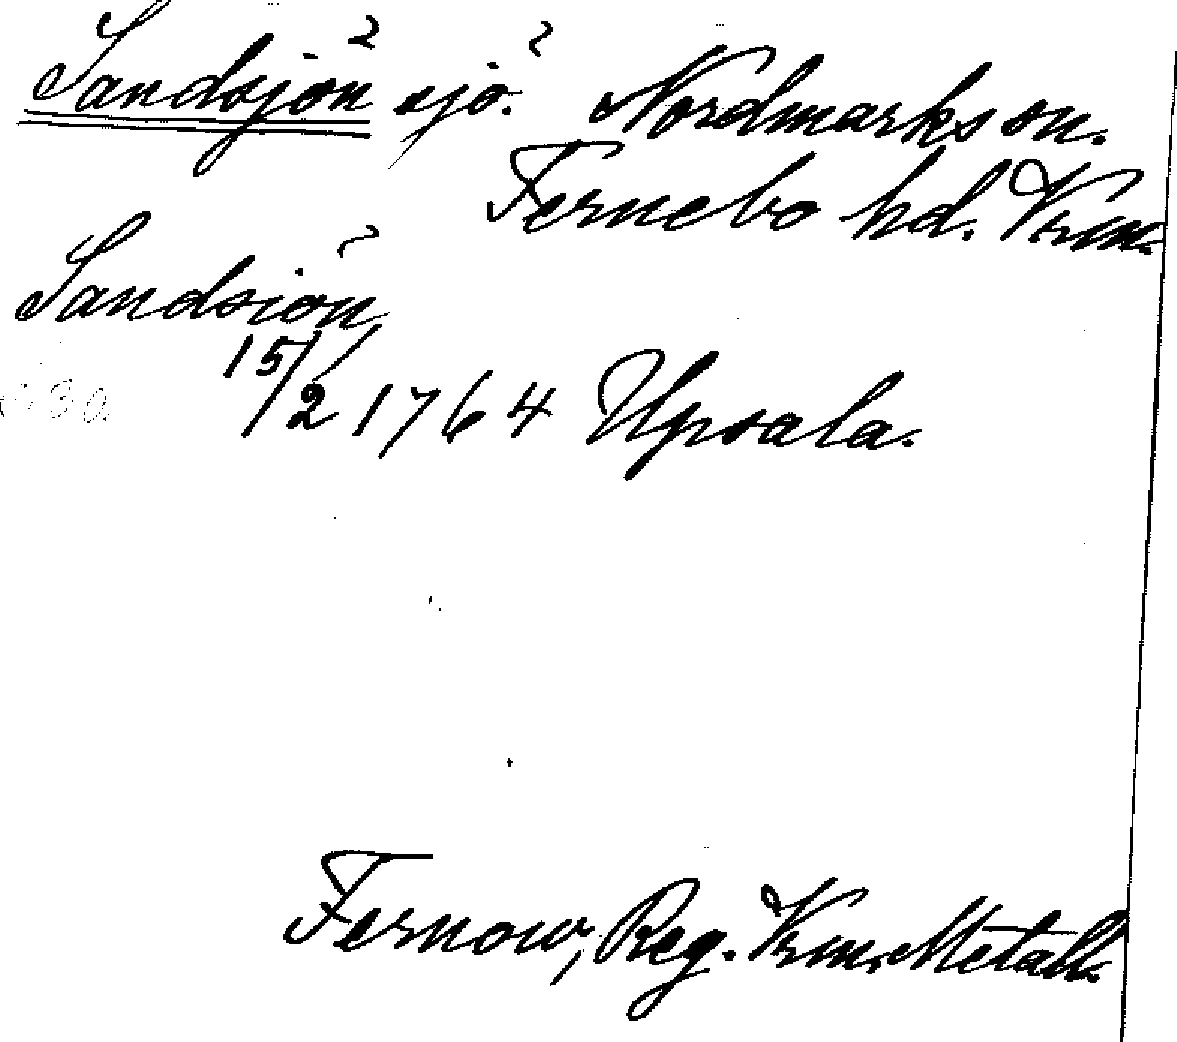 Sandsjön sjö. Nordmarks sn.
Fernebo hd. Vrm.
Sandsiön,
15/2 1764 Upsala.
Fernow, Reg. Vrm. Metall.